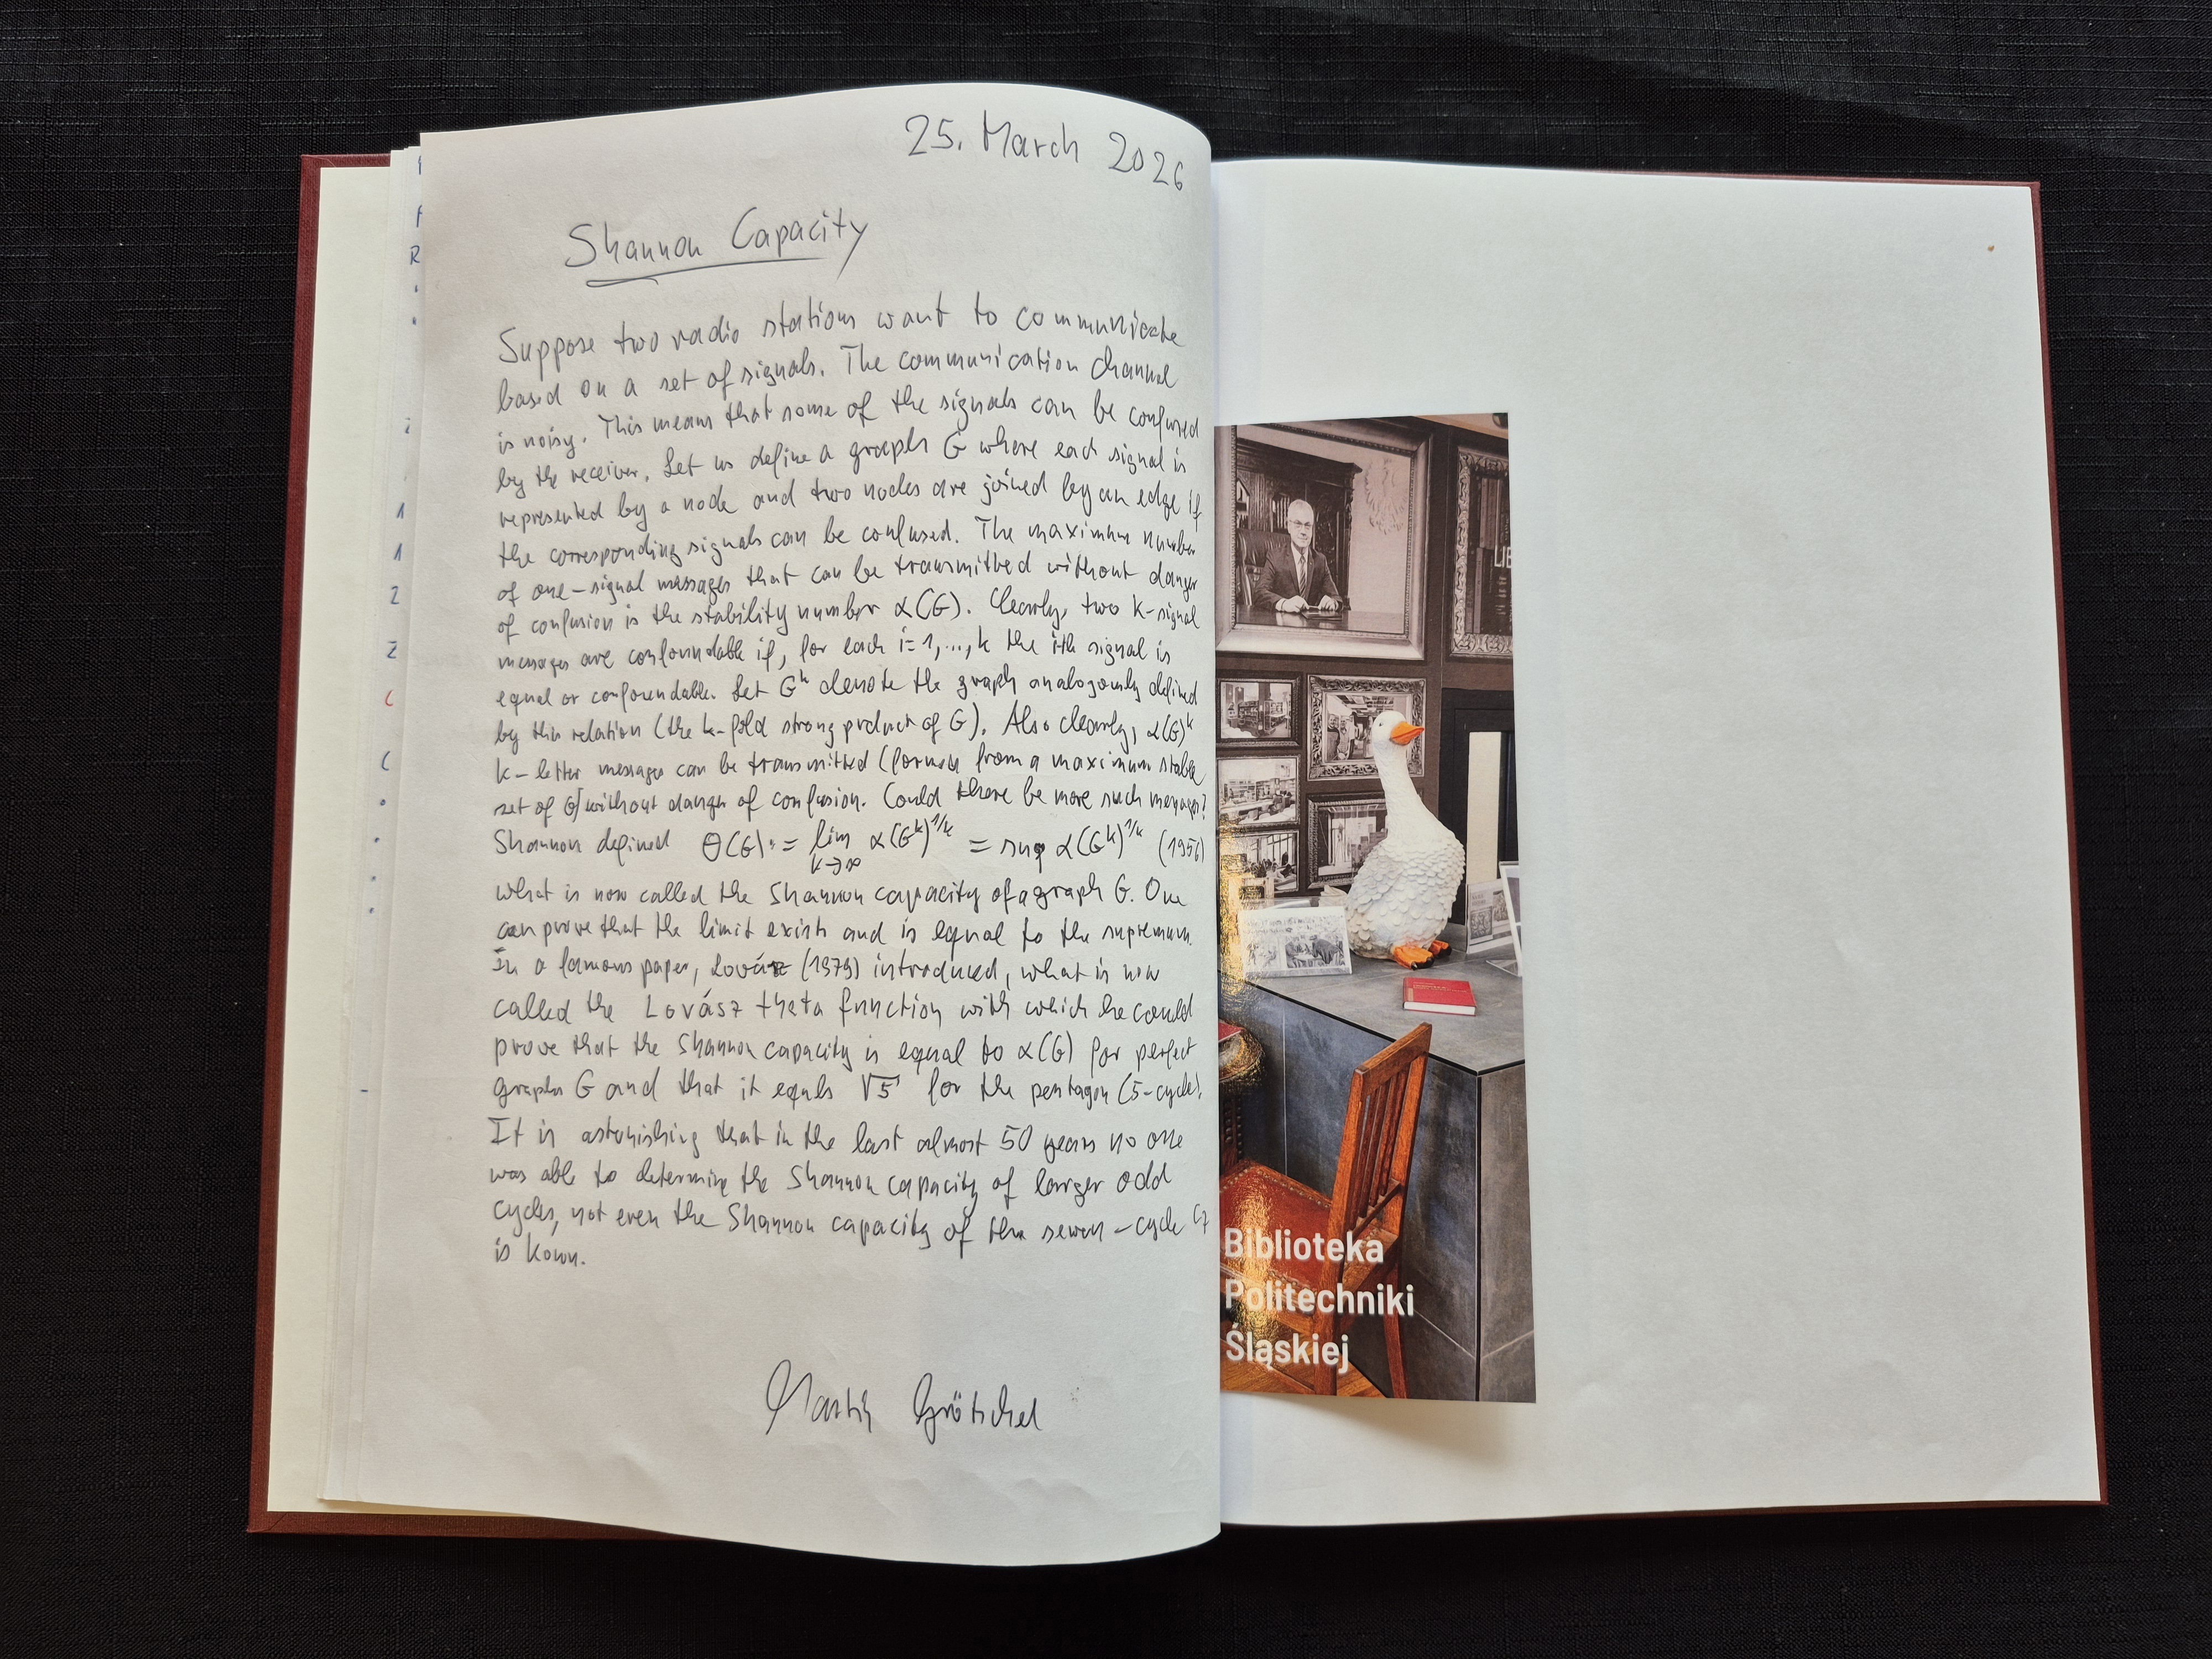 25. March 2026
Shannon Capacity
Suppose two radio stations want to communicate
based on a set of signals. The communication channel
is noisy. This means that some of the signals can be confused
by the receiver. Let us define a graph G where each signal is
represented by a node and two nodes are joined by an edge if
the corresponding signals can be confused. The maximum number
of one-signal messages that can be transmitted without danger
of confusion is the stability number α(G). Clearly, two k-signal
messages are confoundable if, for each i=1,...,k the ith signal is
equal or confoundable. Let Gᵏ denote the graph analogously defined
by this relation (the k-fold strong product of G). Also clearly, α(G)ᵏ
k-letter messages can be transmitted (formed from a maximum stable
set of G) without danger of confusion. Could there be more such messages?
Shannon defined Θ(G) := lim k→∞ α(Gᵏ)^1/k = sup α(Gᵏ)^1/k (1956)
what is now called the Shannon capacity of a graph G. One
can prove that the limit exists and is equal to the supremum.
In a famous paper, Lovász (1979) introduced, what is now
called the Lovász theta function with which he could
prove that the Shannon capacity is equal to α(G) for perfect
graphs G and that it equals √5 for the pentagon (5-cycle).
It is astonishing that in the last almost 50 years no one
was able to determine the Shannon capacity of larger odd
cycles, not even the Shannon capacity of the seven-cycle C₇
is kown.
Martin Grötschel
Biblioteka
Politechniki
Śląskiej